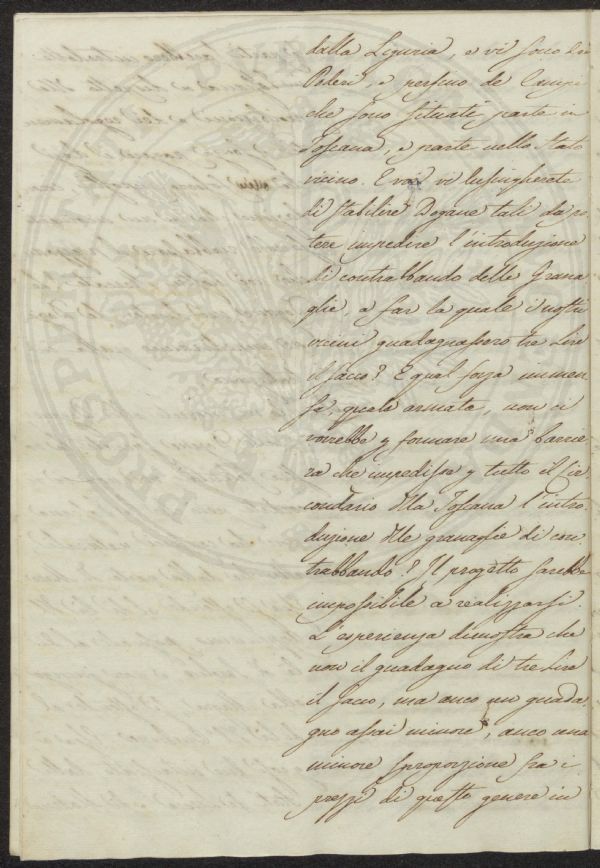 dalla Liguria, e vi sono dei
Poderi, e persino de Campi
che sono situati, parte in
Toscana, e parte nello Stato
vicino. E voi vi lusinghereste
di stabilire Dogane tali da po
tere impedire l'introduzione
di contrabbando delle Grana
glie, a far la quale i nostri
vicini guadagnassero tre Lire
il sacco? E qual forza immen
sa, quale armata, non ci
vorrebbe p formare una barrie
ra che impedisse p tutto il Cir
condario della Toscana l'intro
duzione delle granaglie di con
trabbando? Il progetto sarebbe
impossibile a realizzarsi.
L'esperienza dimostra che
non il guadagno di tre Lire
il sacco, ma anco un guada
gno assai minore, anco una
minore sproporzione fra i
prezzi di questo genere in
PROSPER